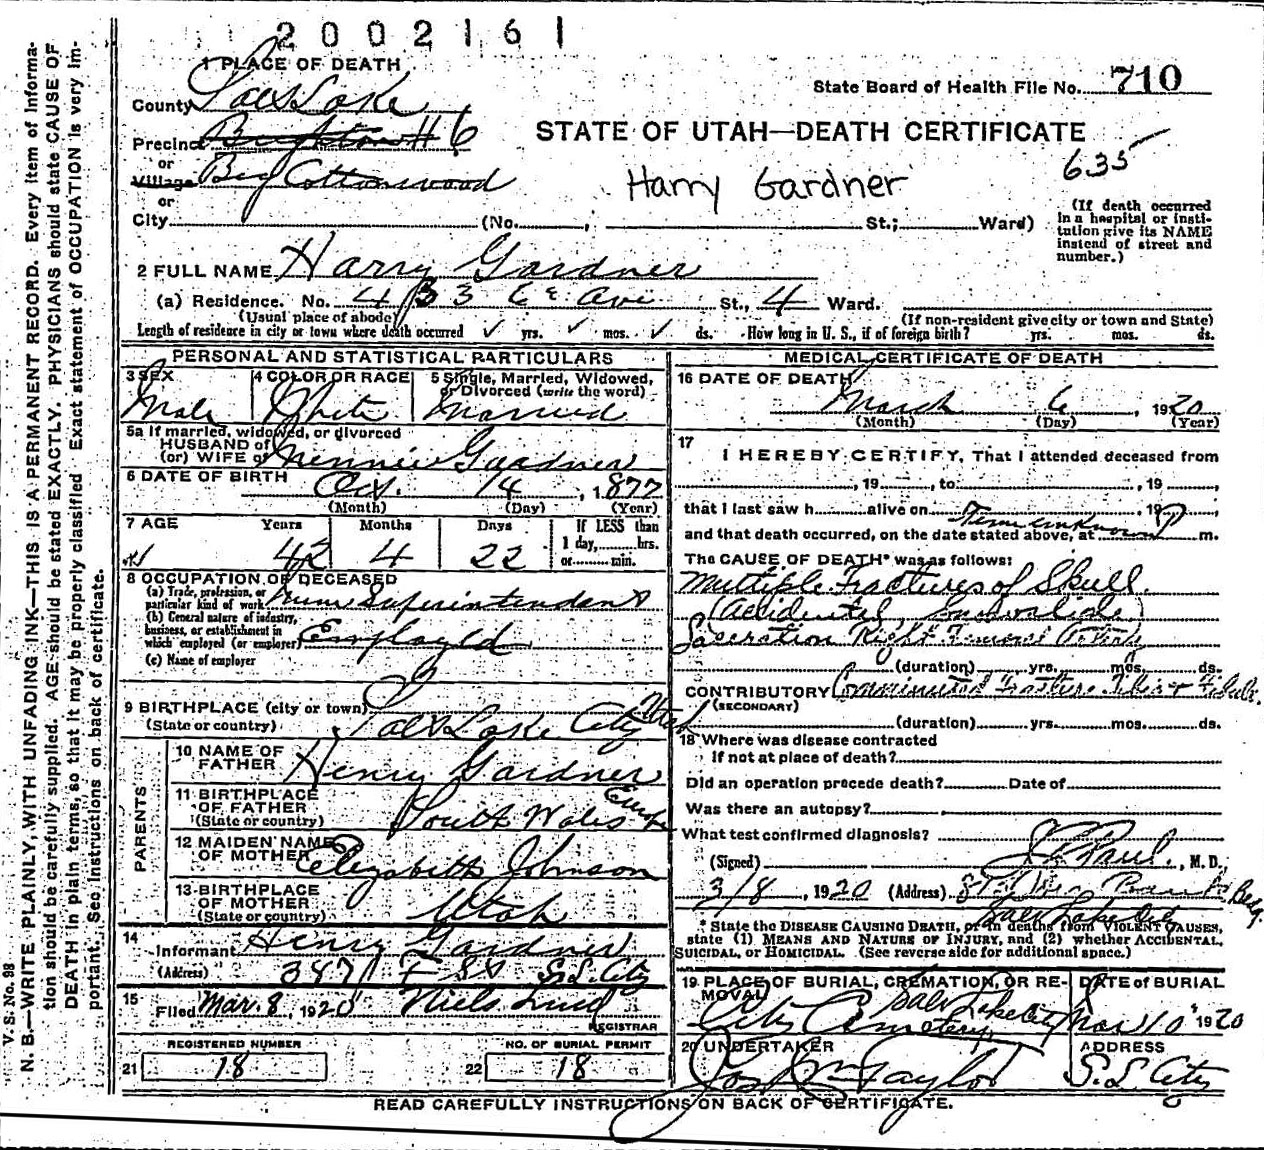 2002161
1 PLACE OF DEATH
State Board of Health File No. 710
County Salt Lake
STATE OF UTAH—DEATH CERTIFICATE
Precinct Brighton # 6
635
or
Village Big Cottonwood
Harry Gardner
or
City (No. , St.; Ward)
(If death occurred in a hospital or insti-
tution give its NAME
instead of street and
number.)
2 FULL NAME Harry Gardner
(a) Residence. No. 433 6th Ave St., 4 Ward.
(Usual place of abode) (If non-resident give city or town and State)
Length of residence in city or town where death occurred ✓ yrs. ✓ mos. ✓ ds. How long in U. S., if of foreign birth? yrs. mos. ds.
PERSONAL AND STATISTICAL PARTICULARS
3 SEX 4 COLOR OR RACE 5 Single, Married, Widowed,
or Divorced (write the word)
Male White Married
5a If married, widowed, or divorced
HUSBAND of
(or) WIFE of Minnie Gardner
6 DATE OF BIRTH Oct. 14, 1877
(Month) (Day) (Year)
7 AGE Years Months Days If LESS than
1 day, hrs.
or min.
42 4 22
8 OCCUPATION OF DECEASED
(a) Trade, profession, or
particular kind of work Superintendent
(b) General nature of industry,
business, or establishment in
which employed (or employer) Employed
(c) Name of employer
9 BIRTHPLACE (city or town)
(State or country) Salt Lake City Utah
PARENTS
10 NAME OF
FATHER Henry Gardner
11 BIRTHPLACE
OF FATHER
(State or country) South Wales Europe
12 MAIDEN NAME
OF MOTHER Elizabeth Johnson
13 BIRTHPLACE
OF MOTHER
(State or country) Utah
14 Informant Henry Gardner
(Address) 387 F St S.L. City
15 Filed Mar. 8, 1920 Niels Lind
REGISTRAR
REGISTERED NUMBER NO. OF BURIAL PERMIT
21 18 22 18
MEDICAL CERTIFICATE OF DEATH
16 DATE OF DEATH
March 6, 1920
(Month) (Day) (Year)
17
I HEREBY CERTIFY, That I attended deceased from
, 19 , to , 19 ,
that I last saw h alive on , 19
and that death occurred, on the date stated above, at Time unknown m.
The CAUSE OF DEATH* was as follows:
Multiple Fractures of Skull
(Accidental, Snowslide)
Laceration Right Femoral Artery
(duration) yrs. mos. ds.
CONTRIBUTORY Comminuted Fracture Tibia & Fibula.
(SECONDARY)
(duration) yrs. mos. ds.
18 Where was disease contracted
If not at place of death?
Did an operation precede death? Date of
Was there an autopsy?
What test confirmed diagnosis?
(Signed) Paul, M. D.
3/8, 1920 (Address) Bank Bldg.
Salt Lake City
* State the DISEASE CAUSING DEATH, or in deaths from VIOLENT CAUSES,
state (1) MEANS AND NATURE OF INJURY, and (2) whether ACCIDENTAL,
SUICIDAL, or HOMICIDAL. (See reverse side for additional space.)
19 PLACE OF BURIAL, CREMATION, OR RE-
MOVAL
DATE of BURIAL
City Cemetery, Salt Lake City Mar 10 1920
20 UNDERTAKER ADDRESS
Jos Wm Taylor S. L. City
READ CAREFULLY INSTRUCTIONS ON BACK OF CERTIFICATE.
V. S. No. 88
N. B.—WRITE PLAINLY, WITH UNFADING INK—THIS IS A PERMANENT RECORD. Every item of informa-
tion should be carefully supplied. AGE should be stated EXACTLY. PHYSICIANS should state CAUSE OF
DEATH in plain terms, so that it may be properly classified. Exact statement of OCCUPATION is very im-
portant. See instructions on back of certificate.